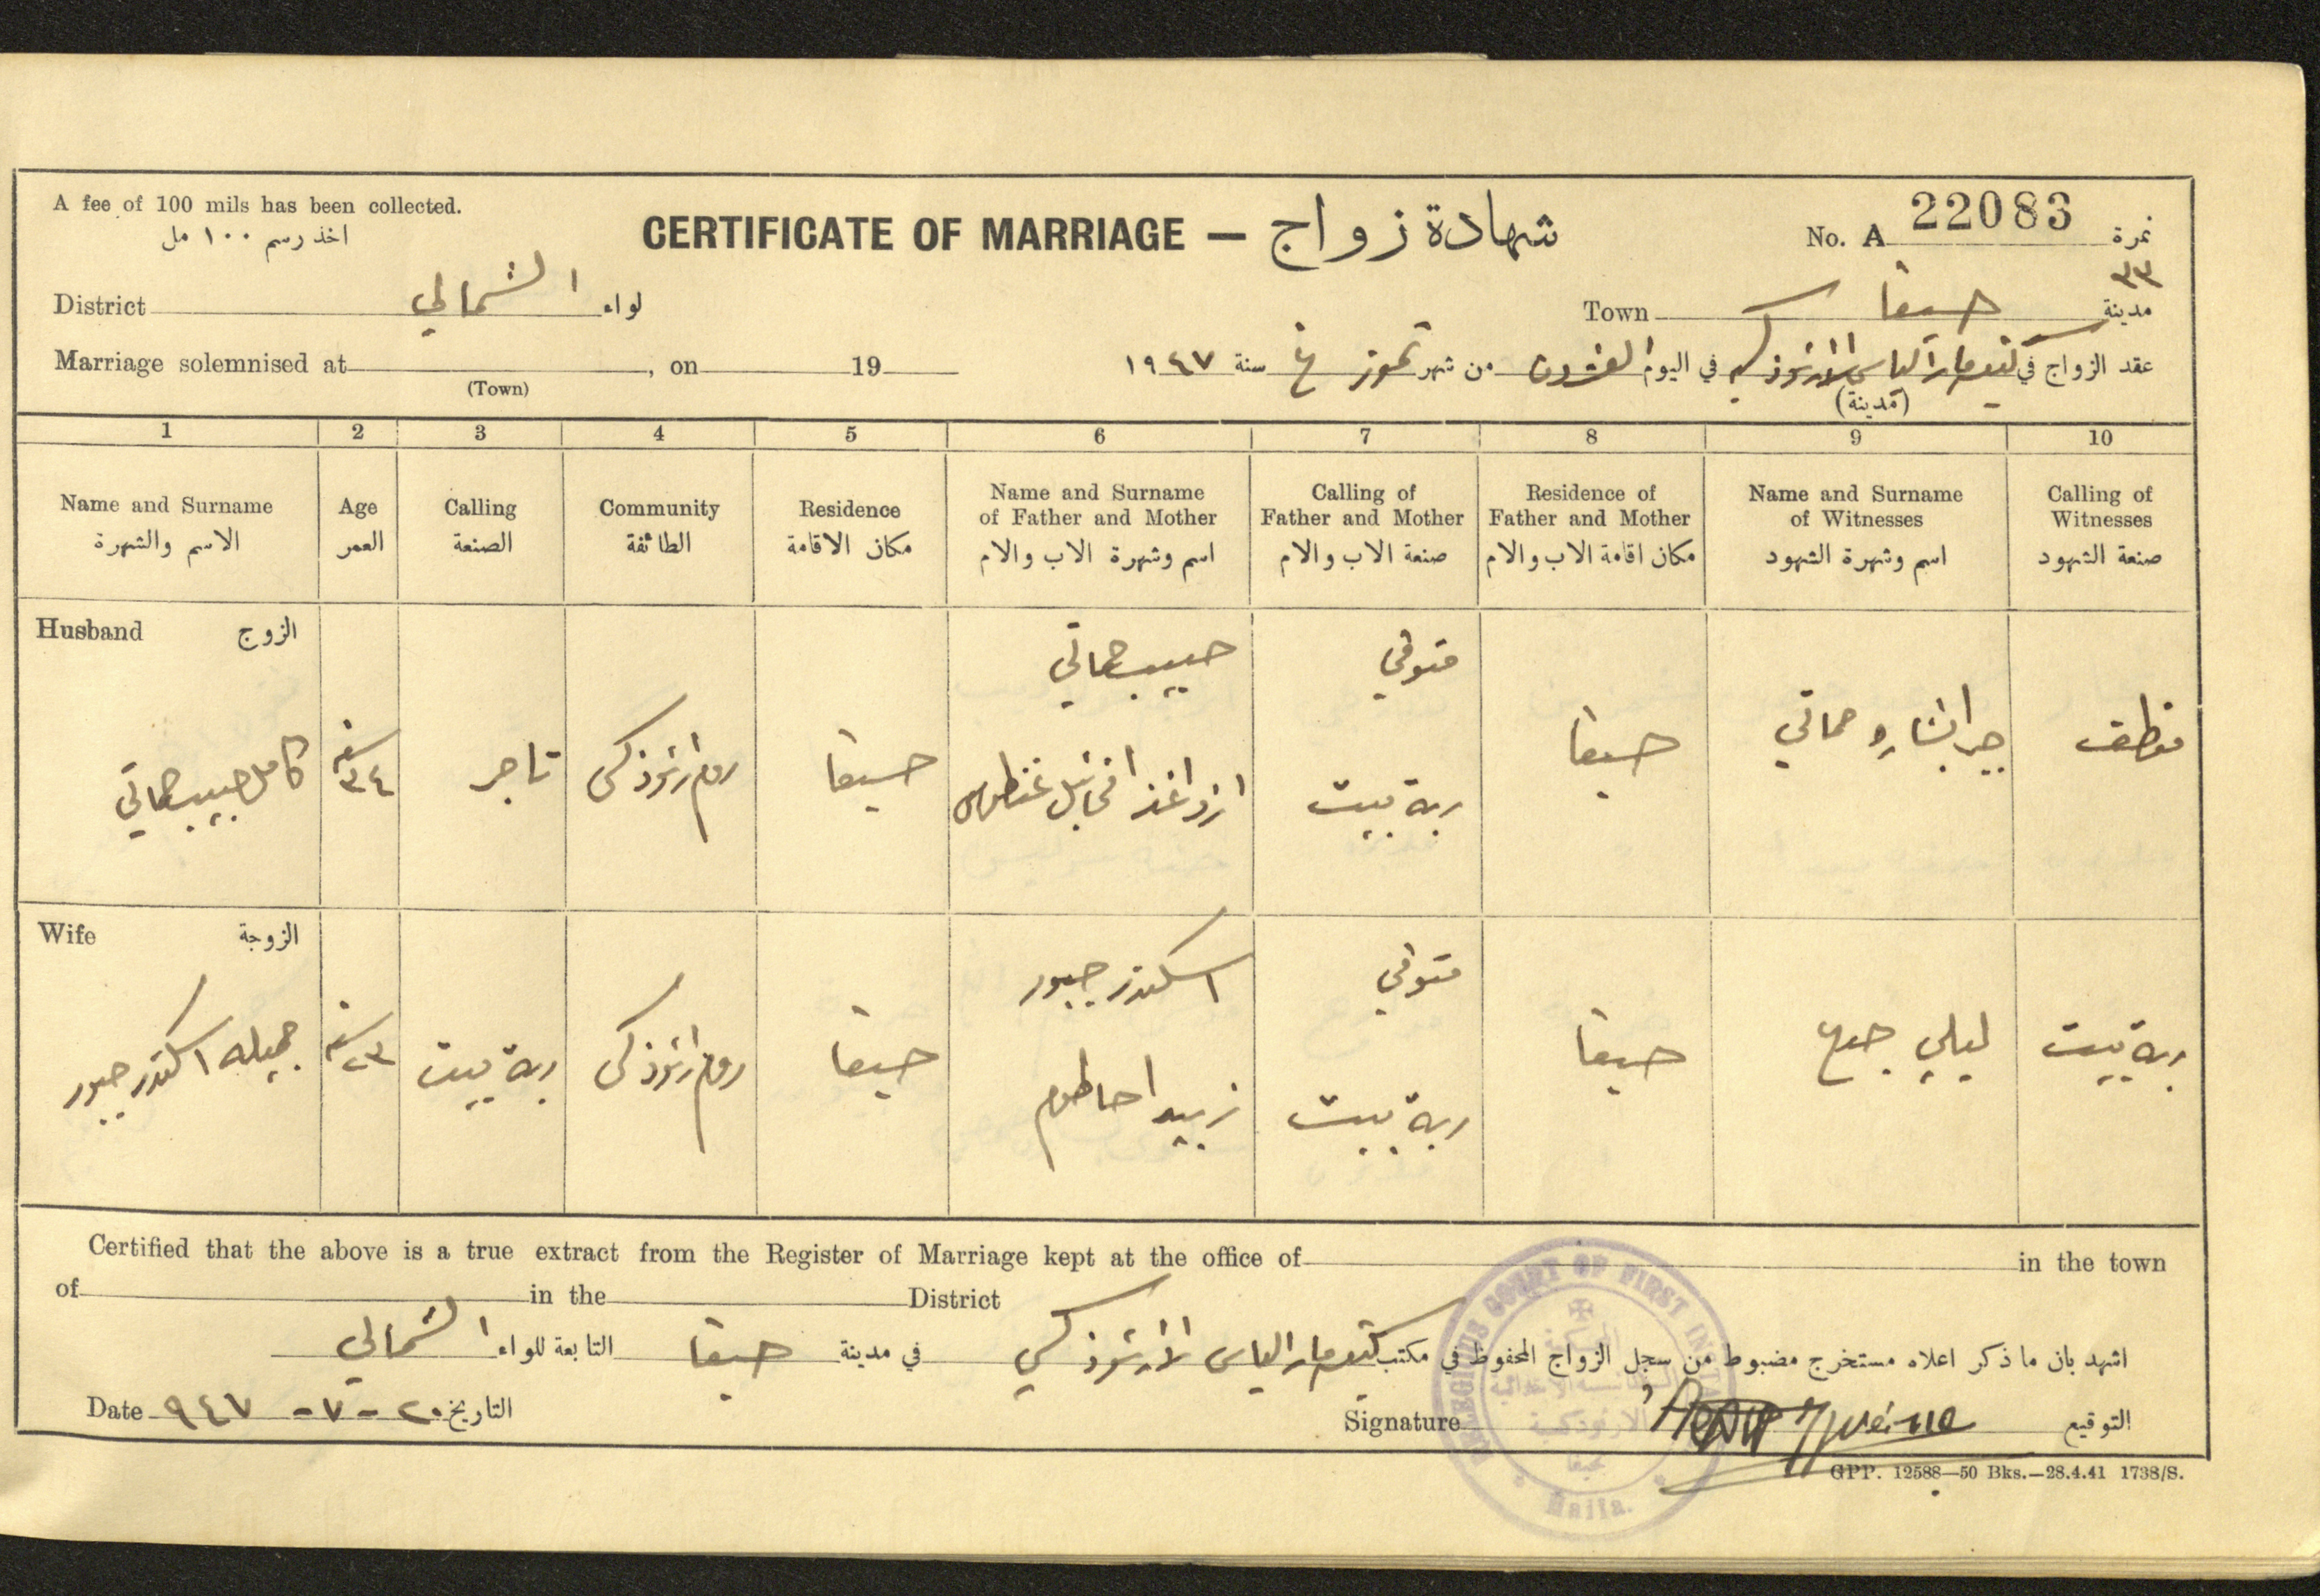 A fee of 100 mils has been collected.
اخذ رسم ١٠٠ مل
CERTIFICATE OF MARRIAGE — شهادة زواج
No. A 22083 نمرة
٣٣
District الشمالي لواء
Town حيفا مدينة
Marriage solemnised at , on 19
(Town)
عقد الزواج في كنيسة مار الياس الارثوذكسية في اليوم العشرون من شهر تموز سنة ١٩٤٧
(مدينة)
1 2 3 4 5 6 7 8 9 10
Name and Surname
الاسم والشهرة
Age
العمر
Calling
الصنعة
Community
الطائفة
Residence
مكان الاقامة
Name and Surname
of Father and Mother
اسم وشهرة الاب والام
Calling of
Father and Mother
صنعة الاب والام
Residence of
Father and Mother
مكان اقامة الاب والام
Name and Surname
of Witnesses
اسم وشهرة الشهود
Calling of
Witnesses
صنعة الشهود
Husband الزوج
كامل حبيب حماتي
سنة
٣٤
تاجر
روم ارثوذكس
حيفا
حبيب حماتي
متوفي
ربة بيت
حيفا
حماتي
موظف
Wife الزوجة
جميله اسكندر جبور
سنة
٢٣
ربة بيت
روم ارثوذكس
حيفا
اسكندر جبور
متوفي
ربة بيت
حيفا
ليلي جدع
ربة بيت
Certified that the above is a true extract from the Register of Marriage kept at the office of in the town
of in the District
اشهد بان ما ذكر اعلاه مستخرج مضبوط من سجل الزواج المحفوظ في مكتب كنيسة مار الياس الارثوذكسي في مدينة حيفا التابعة للواء الشمالي
Date ٢٠-٧-٩٤٧ التاريخ
Signature التوقيع
RELIGIOUS COURT OF FIRST INSTANCE
الارثوذكسية
Haifa.
GPP. 12588—50 Bks.—28.4.41 1738/S.